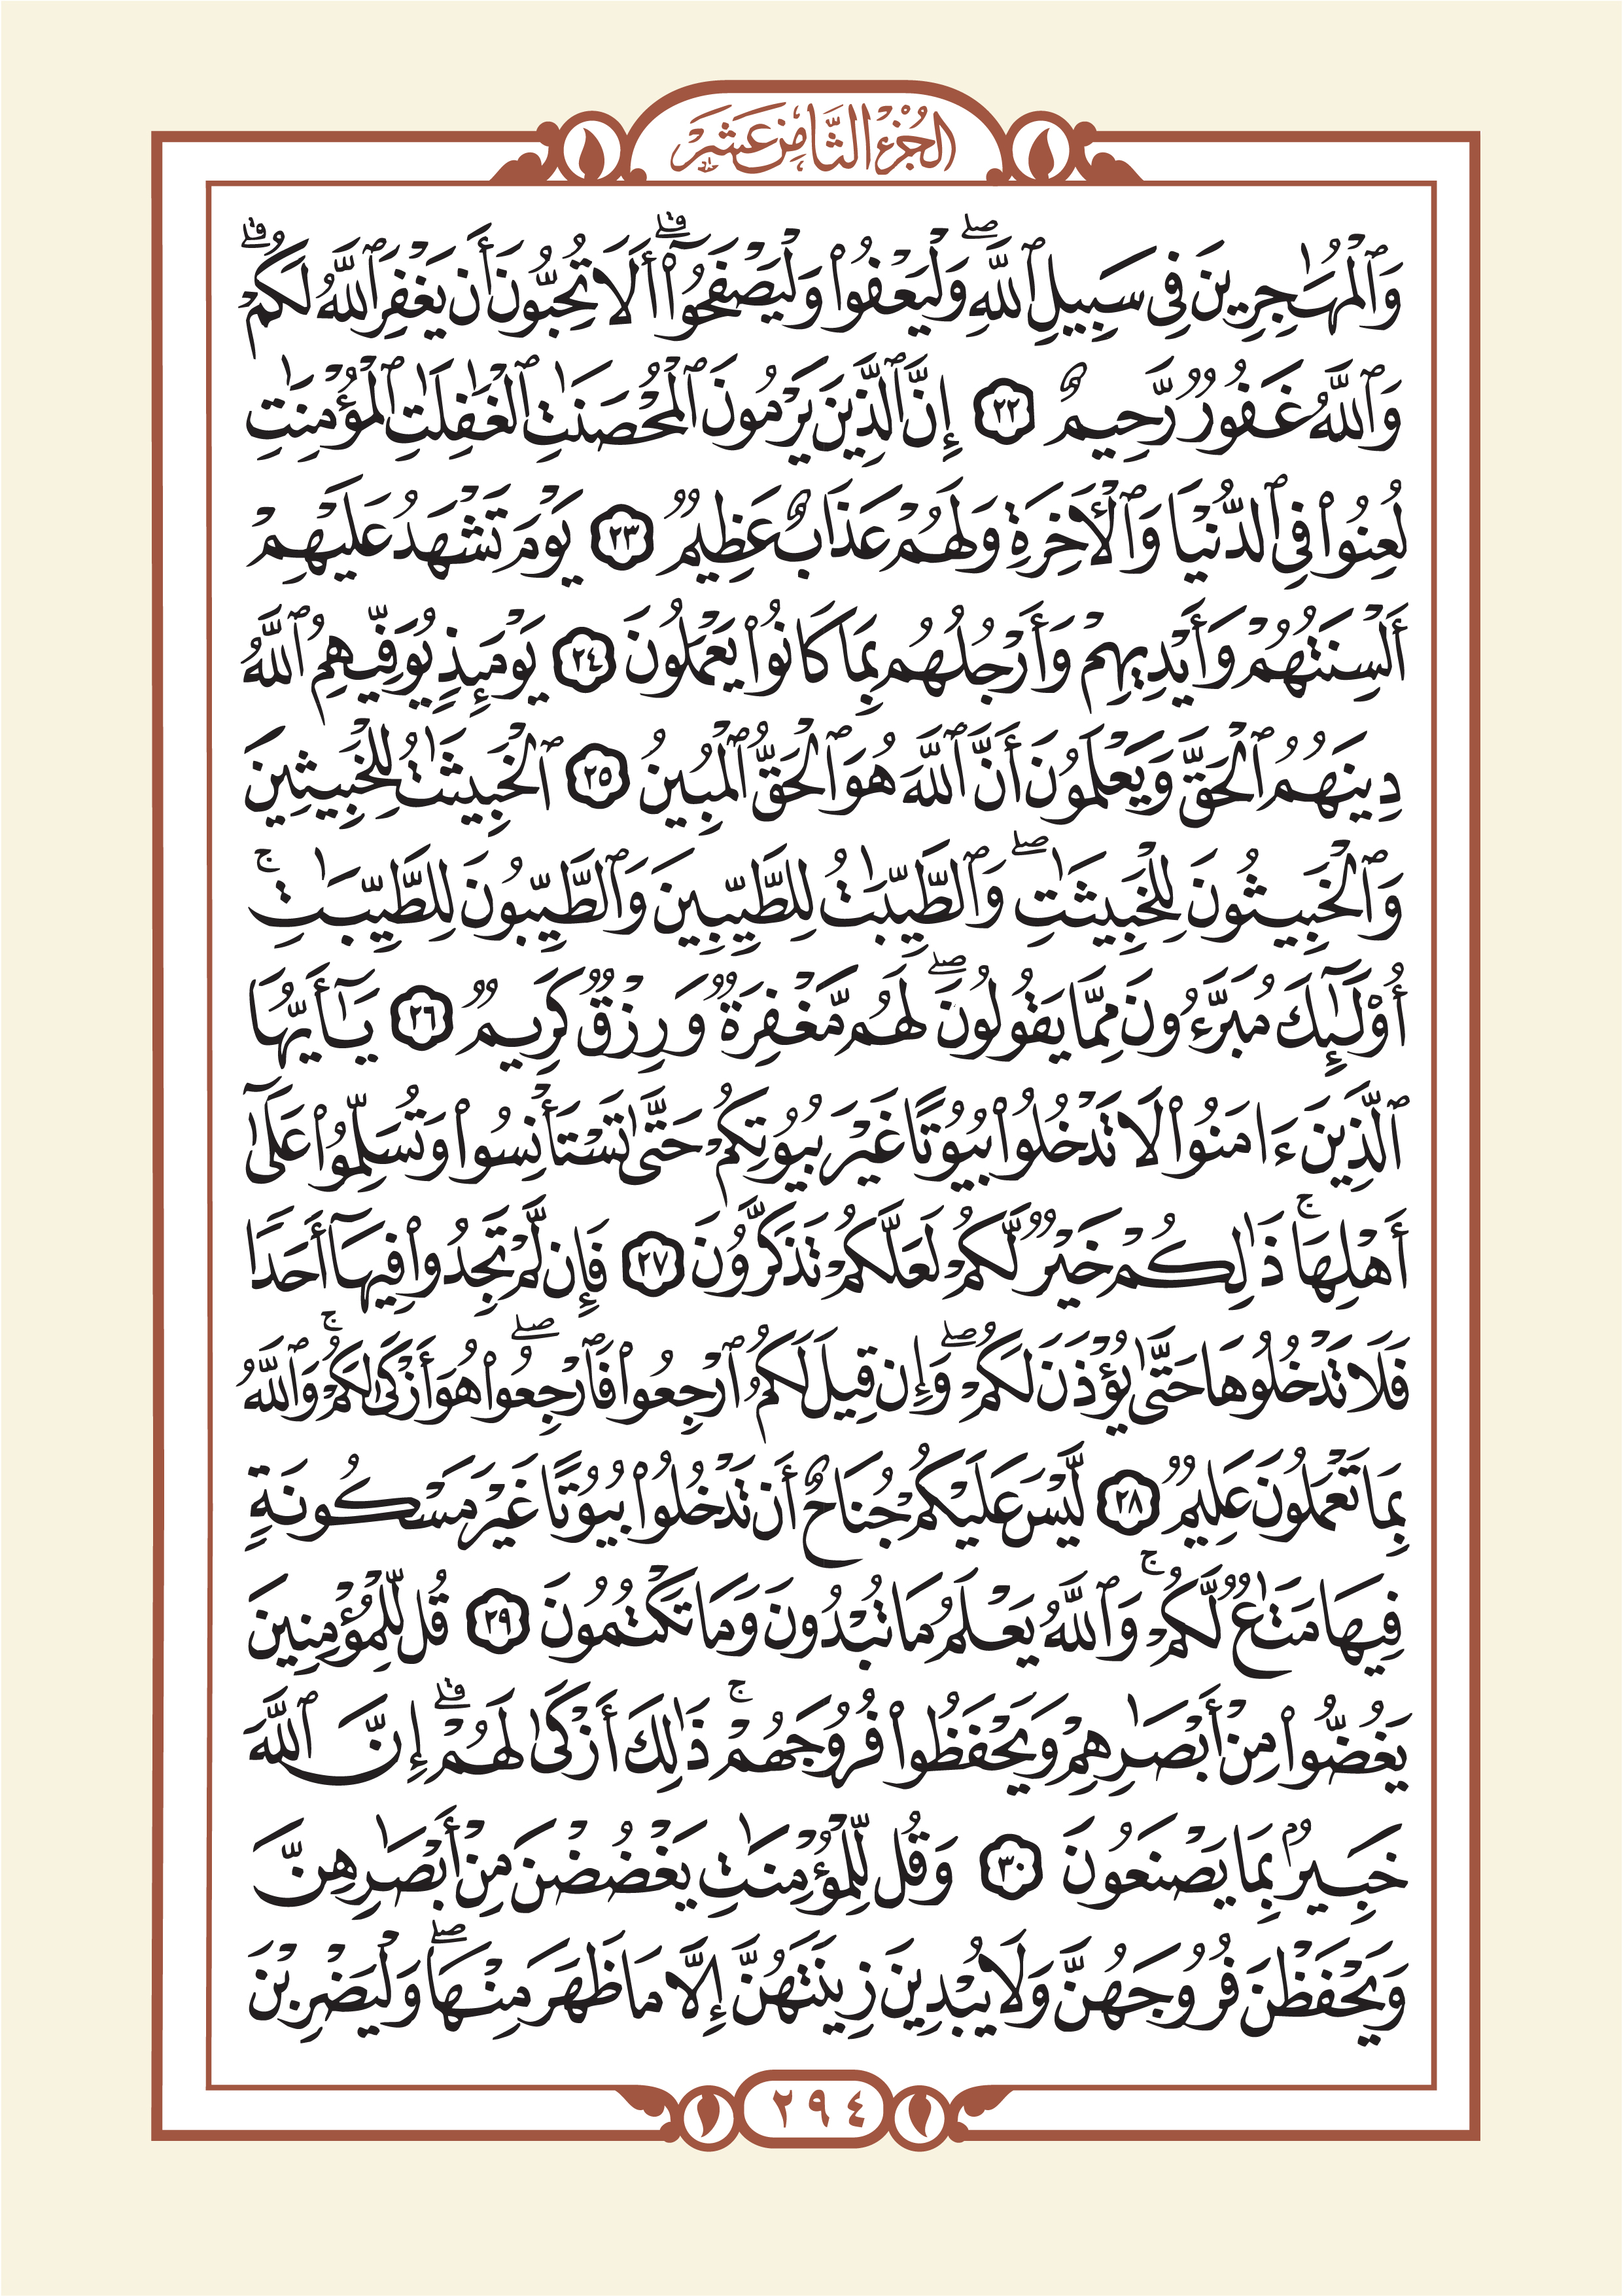 الجُزْءُ الثَّامِنَ عَشَرَ
وَٱلْمُهَٰجِرِينَ فِى سَبِيلِ ٱللَّهِۖ وَلْيَعْفُوا۟ وَلْيَصْفَحُوٓا۟ۗ أَلَا تُحِبُّونَ أَن يَغْفِرَ ٱللَّهُ لَكُمْۗ
وَٱللَّهُ غَفُورٌ رَّحِيمٌ ٢٢ إِنَّ ٱلَّذِينَ يَرْمُونَ ٱلْمُحْصَنَٰتِ ٱلْغَٰفِلَٰتِ ٱلْمُؤْمِنَٰتِ
لُعِنُوا۟ فِى ٱلدُّنْيَا وَٱلْأٓخِرَةِ وَلَهُمْ عَذَابٌ عَظِيمٌ ٢٣ يَوْمَ تَشْهَدُ عَلَيْهِمْ
أَلْسِنَتُهُمْ وَأَيْدِيهِمْ وَأَرْجُلُهُم بِمَا كَانُوا۟ يَعْمَلُونَ ٢٤ يَوْمَئِذٍ يُوَفِّيهِمُ ٱللَّهُ
دِينَهُمُ ٱلْحَقَّ وَيَعْلَمُونَ أَنَّ ٱللَّهَ هُوَ ٱلْحَقُّ ٱلْمُبِينُ ٢٥ ٱلْخَبِيثَٰتُ لِلْخَبِيثِينَ
وَٱلْخَبِيثُونَ لِلْخَبِيثَٰتِۖ وَٱلطَّيِّبَٰتُ لِلطَّيِّبِينَ وَٱلطَّيِّبُونَ لِلطَّيِّبَٰتِۚ
أُو۟لَٰٓئِكَ مُبَرَّءُونَ مِمَّا يَقُولُونَۖ لَهُم مَّغْفِرَةٌ وَرِزْقٌ كَرِيمٌ ٢٦ يَٰٓأَيُّهَا
ٱلَّذِينَ ءَامَنُوا۟ لَا تَدْخُلُوا۟ بُيُوتًا غَيْرَ بُيُوتِكُمْ حَتَّىٰ تَسْتَأْنِسُوا۟ وَتُسَلِّمُوا۟ عَلَىٰٓ
أَهْلِهَاۚ ذَٰلِكُمْ خَيْرٌ لَّكُمْ لَعَلَّكُمْ تَذَكَّرُونَ ٢٧ فَإِن لَّمْ تَجِدُوا۟ فِيهَآ أَحَدًا
فَلَا تَدْخُلُوهَا حَتَّىٰ يُؤْذَنَ لَكُمْۖ وَإِن قِيلَ لَكُمُ ٱرْجِعُوا۟ فَٱرْجِعُوا۟ۖ هُوَ أَزْكَىٰ لَكُمْۚ وَٱللَّهُ
بِمَا تَعْمَلُونَ عَلِيمٌ ٢٨ لَّيْسَ عَلَيْكُمْ جُنَاحٌ أَن تَدْخُلُوا۟ بُيُوتًا غَيْرَ مَسْكُونَةٍ
فِيهَا مَتَٰعٌ لَّكُمْۚ وَٱللَّهُ يَعْلَمُ مَا تُبْدُونَ وَمَا تَكْتُمُونَ ٢٩ قُل لِّلْمُؤْمِنِينَ
يَغُضُّوا۟ مِنْ أَبْصَٰرِهِمْ وَيَحْفَظُوا۟ فُرُوجَهُمْۚ ذَٰلِكَ أَزْكَىٰ لَهُمْۗ إِنَّ ٱللَّهَ
خَبِيرٌۢ بِمَا يَصْنَعُونَ ٣٠ وَقُل لِّلْمُؤْمِنَٰتِ يَغْضُضْنَ مِنْ أَبْصَٰرِهِنَّ
وَيَحْفَظْنَ فُرُوجَهُنَّ وَلَا يُبْدِينَ زِينَتَهُنَّ إِلَّا مَا ظَهَرَ مِنْهَاۖ وَلْيَضْرِبْنَ
٢٩٤